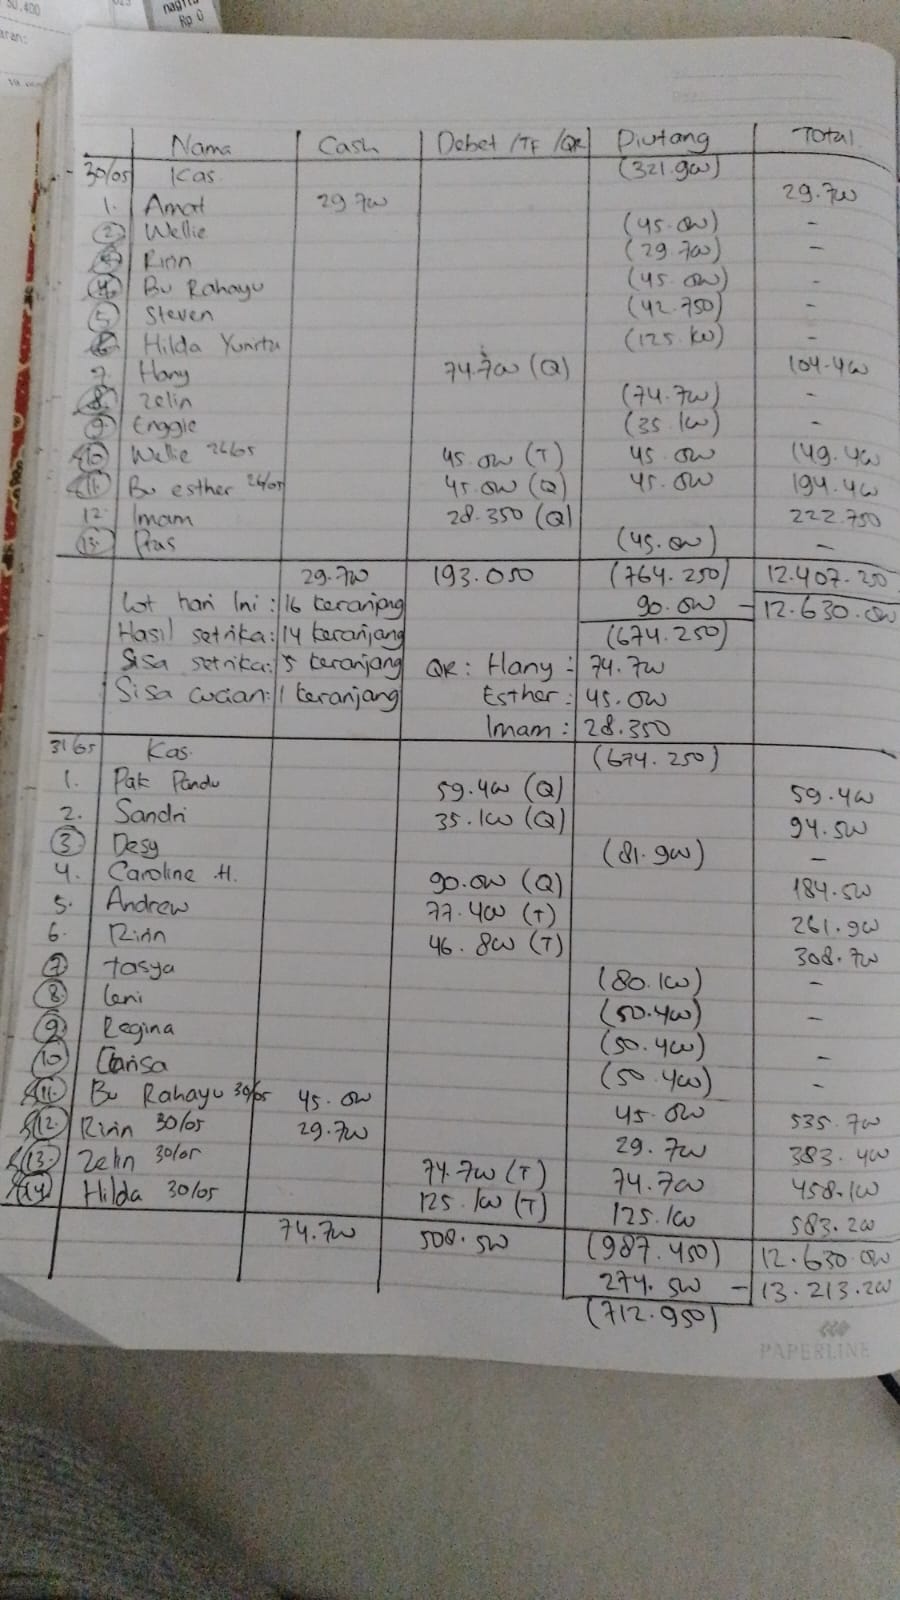 50.400
nagih
Rp 0
aran:
Nama Cash Debet /TF /QR Piutang Total
30/05 Kas (321.900)
1. Amat 29.700 29.700
2 Wellie (45.000) -
3 Ririn (29.700) -
4 Bu Rahayu (45.000) -
5 Steven (42.750) -
6 Hilda Yunita (125.100) -
7. Hany 74.700 (Q) 104.400
8 Zelin (74.700) -
9 Enggie (35.100) -
10 Wellie 26/05 45.000 (T) 45.000 149.400
11. Bu esther 26/05 45.000 (Q) 45.000 194.400
12. Imam 28.350 (Q) 222.750
13. Pras (45.000) -
29.700 193.050 (764.250) 12.407.250
Cot hari Ini : 16 keranjang 90.000 - 12.630.000
Hasil setrika: 14 keranjang (674.250)
Sisa setrika: 5 keranjang QR : Hany : 74.700
Sisa cucian: 1 keranjang Esther : 45.000
Imam : 28.350
31/05 Kas. (674.250)
1. Pak Pandu 59.400 (Q) 59.400
2. Sandri 35.100 (Q) 94.500
3 Desy (81.900) -
4. Caroline H. 90.000 (Q) 184.500
5. Andrew 77.400 (T) 261.900
6. Ririn 46.800 (T) 308.700
7 Tasya (80.100) -
8. Leni (50.400) -
9 Regina (50.400)
10 Clarisa (50.400) -
11. Bu Rahayu 30/05 45.000 45.000 535.700
12. Ririn 30/05 29.700 29.700 383.400
13. Zelin 30/05 74.700 (T) 74.700 458.100
14 Hilda 30/05 125.100 (T) 125.100 583.200
74.700 508.500 (987.450) 12.630.000
274.500 - 13.213.200
(712.950)
PAPERLINE